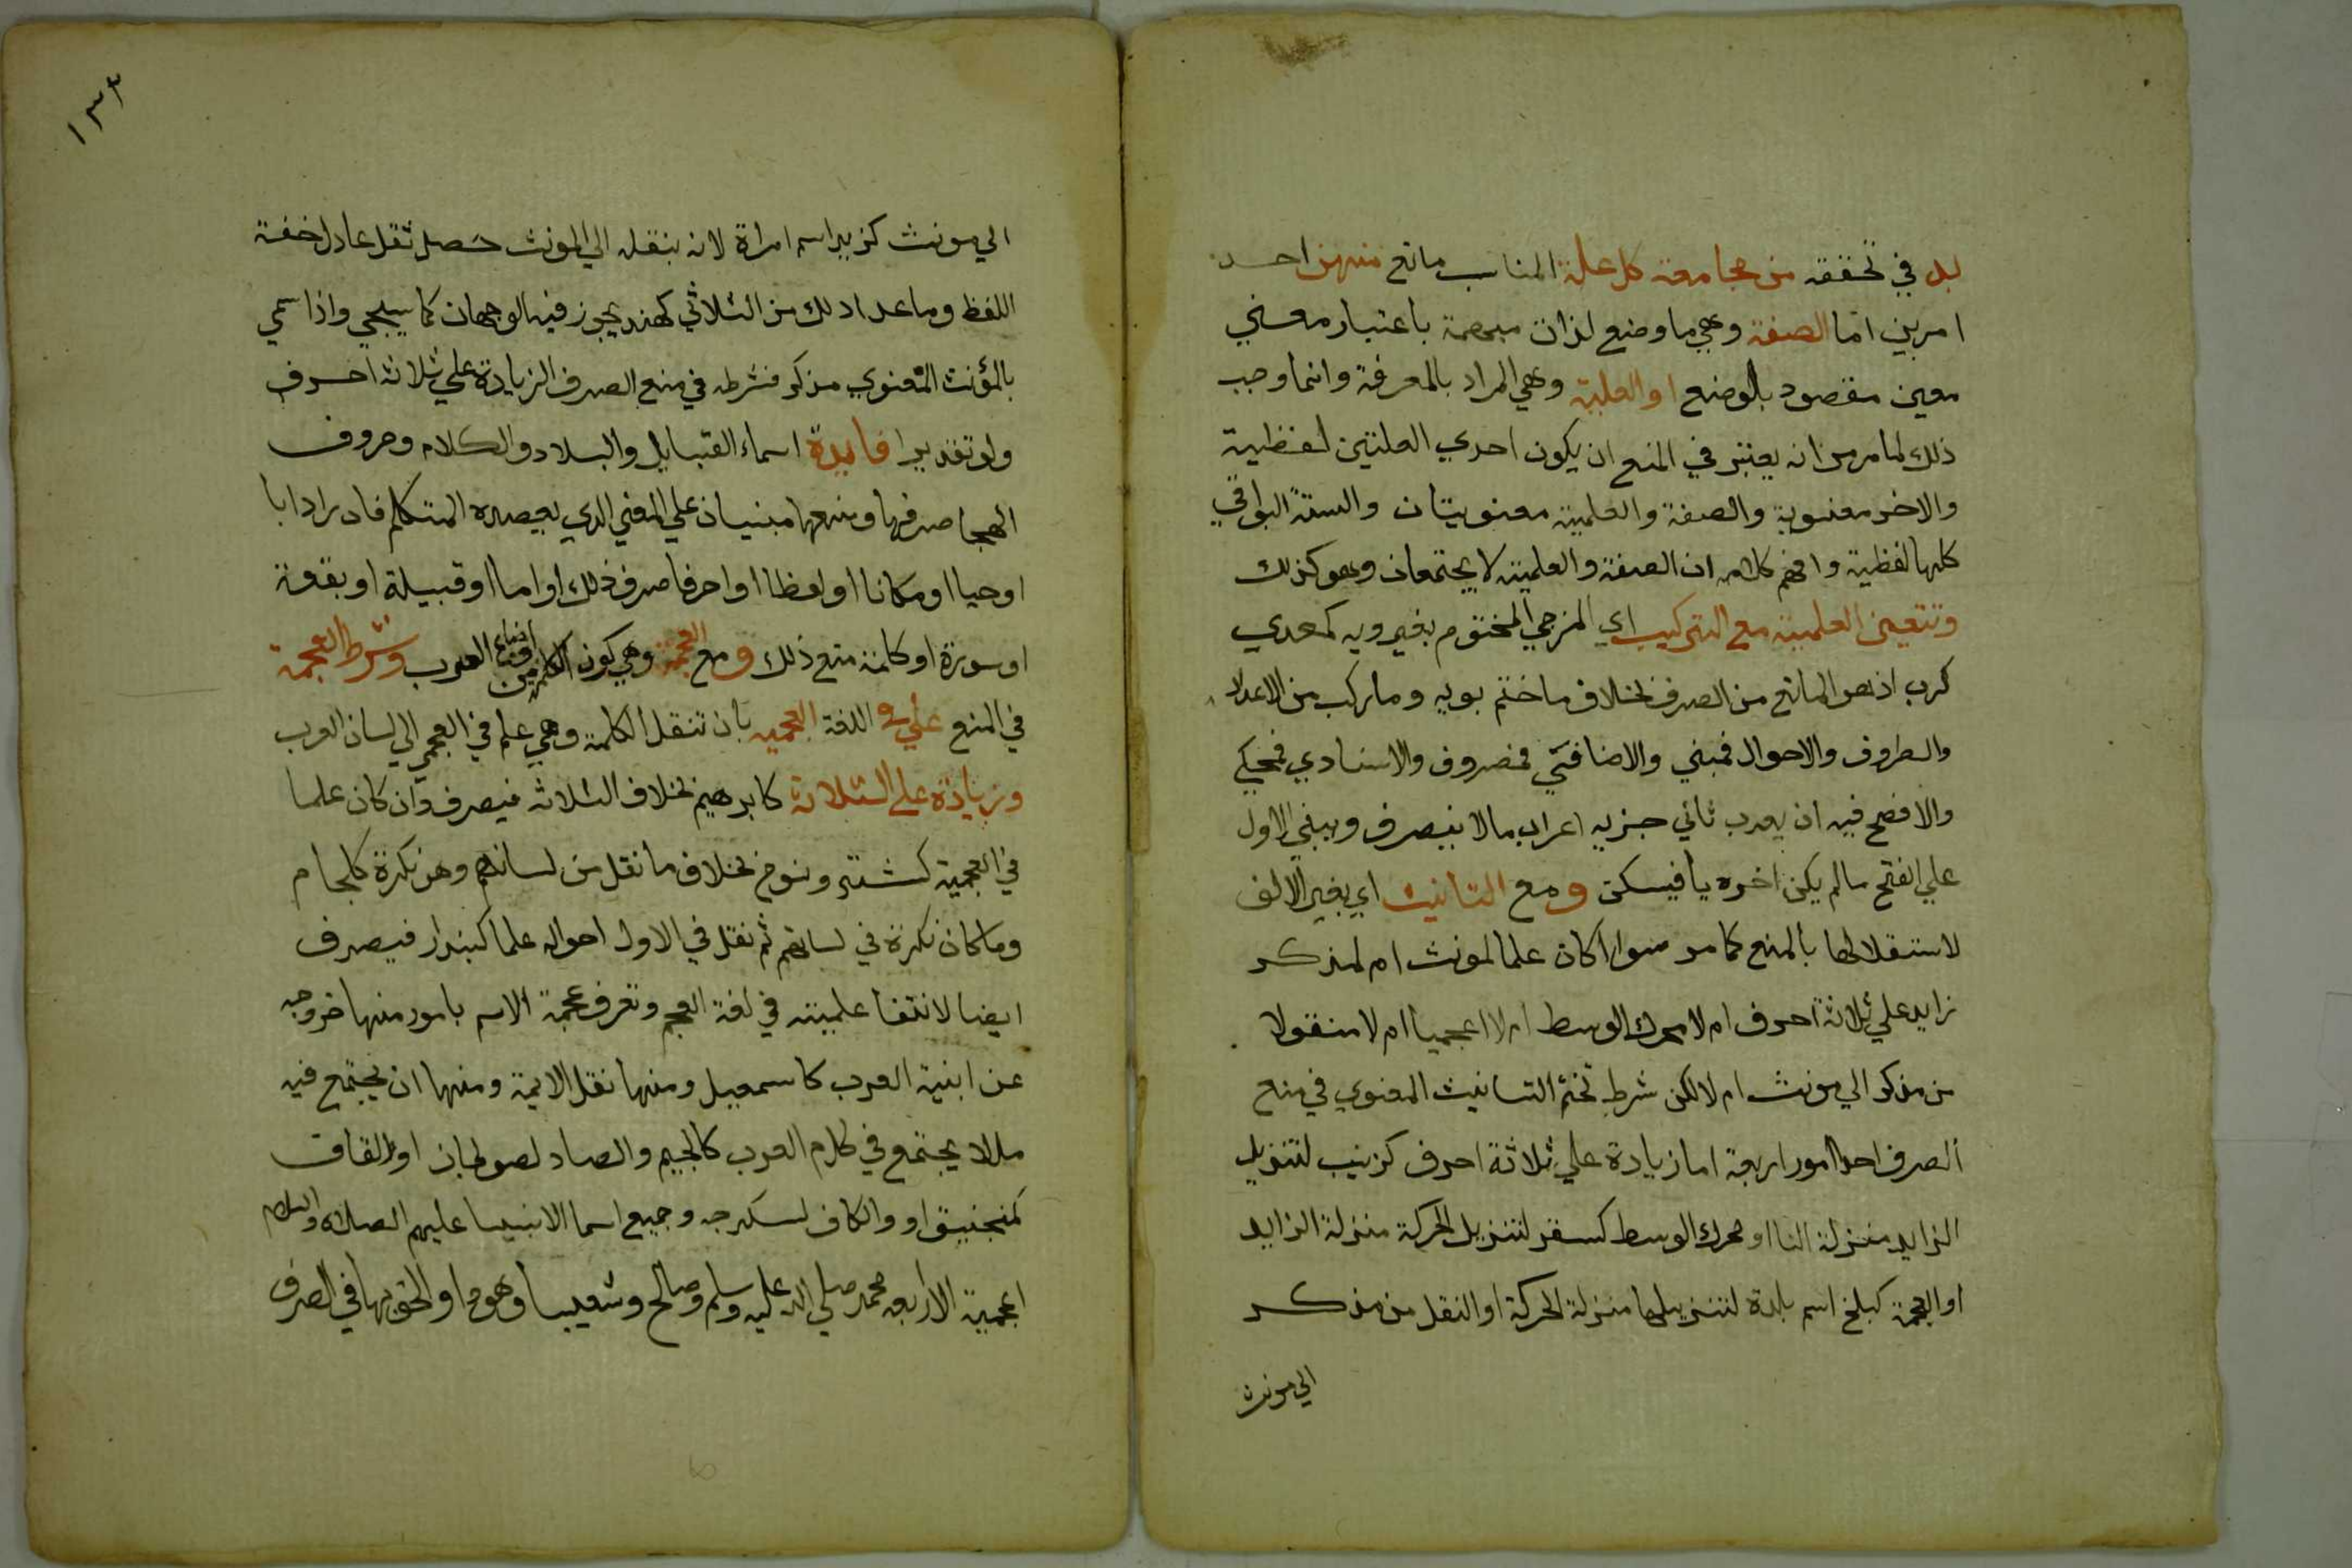 بد في تحققه من مجامعة كل علة المناسب مانع منهن احد
امرين اما الصفة وهي ما وضع لذات مبهمة باعتبار معني
معين مقصود بالوضع او العلمية وهي المراد بالمعرفة وانما وجب
ذلك لما مر من انه يعتبر في المنع ان يكون احدي العلتين لفظية
والاخر معنوية والصفة والعلمية معنويتان والستة البواقي
كلها لفظية وافهم كلامه ان الصفة والعلمية لا يجتمعان وهو كذلك
وتتعين العلمية مع التركيب اي المزجي المختوم بغير ويه كمعدي
كرب اذ هو المانع من الصرف بخلاف ما ختم بويه وما ركب من الاعداد
والظروف والاحوال فمبني والاضافي فمصروف والاسنادي فمحكي
والافصح فيه ان يعرب ثاني جزيه اعراب ما لا ينصرف ويبني الاول
علي الفتح ما لم يكن اخره يا فيسكن ومع التانيث اي بغير الالف
لاستقلالها بالمنع كما مر سوا اكان علما لمونث ام لمذكر
زايد علي ثلاثة احرف ام لا محرك الوسط ام لا اعجميا ام لا منقولا
من مذكر الي مونث ام لا لكن شرط تحتم التانيث المعنوي في منع
الصرف احد امور اربعة اما زيادة علي ثلاثة احرف كزينب لتنزيل
الزايد منزلة التا او محرك الوسط كسقر لتنزيل الحركة منزلة الزايد
او العجمة كبلخ اسم بلدة لتنزيلها منزلة الحركة او النقل من مذكر
الي مونث
١٣٣
الي مونث كزيد اسم امراة لانه بنقله الي المونث حصل ثقل عادل خفة
اللفظ وما عدا ذلك من الثلاثي كهند يجوز فيه الوجهان كما سيجي واذا سمي
بالمؤنث المعنوي مذكر فشرطه في منع الصرف الزيادة علي ثلاثة احرف
ولو تقديرا فايدة اسماء القبايل والبلاد والكلام وحروف
الهجا صرفها ومنعها مبنيان علي المعني الذي يقصده المتكلم فان اراد ابا
او حيا او مكانا او لفظا او حرفا صرف ذلك او اما او قبيلة او بقعة
او سورة او كلمة منع ذلك ومع العجمة وهي كون الكلمة من اوضاع العرب وشرط العجمة
في المنع علمية في اللغة العجمية بان تنقل الكلمة وهي علم في العجمي الي لسان العرب
وزيادة علي الثلاثة كابرهيم بخلاف الثلاثة فيصرف وان كان علما
في العجمية كشتر ونوح بخلاف ما نقل من لسانهم وهو نكرة كلجام
وما كان نكرة في لسانهم ثم نقل في الاول احواله علما كبندار فيصرف
ايضا لانتفا علميته في لغة العجم وتعرف عجمة الاسم بامور منها خروجه
عن ابنية العرب كاسمعيل ومنها نقل الايمة ومنها ان يجتمع فيه
ما لا يجتمع في كلام العرب كالجيم والصاد لصولجان او والقاف
كمنجنيق او والكاف لسكرجه وجميع اسما الانبيا عليهم الصلاه والسلام
اعجمية الا اربعه محمد صلي الله عليه وسلم وصالح وشعيبا وهودا والحق بها في الصرف